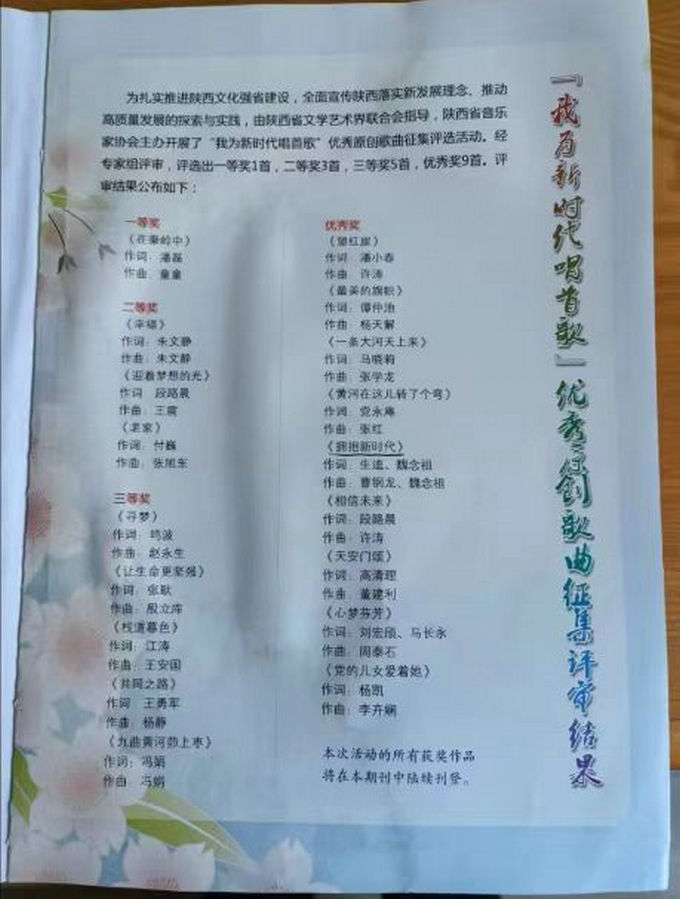 『我为新时代唱首歌』优秀原创歌曲征集评审结果
为扎实推进陕西文化强省建设，全面宣传陕西落实新发展理念、推动
高质量发展的探索与实践，由陕西省文学艺术界联合会指导，陕西省音乐
家协会主办开展了“我为新时代唱首歌”优秀原创歌曲征集评选活动。经
专家组评审，评选出一等奖1首，二等奖3首，三等奖5首，优秀奖9首。评
审结果公布如下：
一等奖
《在秦岭中》
作词：潘磊
作曲：童童
二等奖
《幸福》
作词：朱文静
作曲：朱文静
《迎着梦想的光》
作词 段路晨
作曲：王震
《老家》
作词：付巍
作曲：张旭东
三等奖
《寻梦》
作词：鸣波
作曲：赵永生
《让生命更坚强》
作词：张耿
作曲：殷立库
《栈道暮色》
作词：江涛
作曲：王安国
《共同之路》
作词 王勇军
作曲：杨静
《九曲黄河峁上枣》
作词：冯娟
作曲：冯娟
优秀奖
《望红崖》
作词：潘小春
作曲 许涛
《最美的旗帜》
作词：谭仲池
作曲：杨天解
《一条大河天上来》
作词：马晓莉
作曲：张学龙
《黄河在这儿转了个弯》
作词：党永庵
作曲：张红
《拥抱新时代》
作词：生迪、魏念祖
作曲：曹钢龙、魏念祖
《相信未来》
作词：段路晨
作曲：许涛
《天安门颂》
作词：高清理
作曲：董建利
《心梦芬芳》
作词：刘宏颀、马长永
作曲：周泰石
《党的儿女爱着她》
作词：杨凯
作曲：李卉娴
本次活动的所有获奖作品
将在本期刊中陆续刊登。